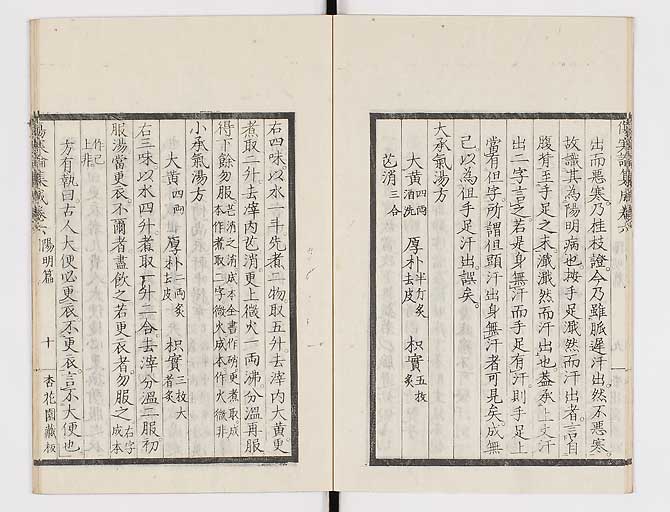 傷寒論集成卷六
出而惡寒。乃桂枝證。今乃雖脈遲汗出然不惡寒。
故識其為陽明病也按手足濈然而汗出者。言自
腹背至手足之末濈濈然而汗出也。蓋承上文汗
出二字言之若是身無汗而手足有汗則手足上
當有但字所謂但頭汗出身無汗者可見矣成無
己以為但手足汗出。誤矣。
大承氣湯方
大黄四兩酒洗 厚朴半斤炙去皮 枳實五枚炙
芒消三合
右四味以水一斗先煮二物取五升。去滓内大黄。更
煮取二升去滓内芒消。更上微火一兩沸分溫再服
得下餘勿服芒消之消成本全書作硝更煮取成本作煮取二字微火成本作火微非
小承氣湯方
大黄四兩 厚朴二兩炙去皮 枳實三枚大者炙
右三味以水四升。煮取一升二合。去滓分溫二服初
服湯當更衣。不爾者盡飲之若更衣者。勿服之右字成本
作已上非
方有執曰古人大便必更衣不更衣言不大便也
傷寒論集成卷六 陽明篇 十 杏花園藏板